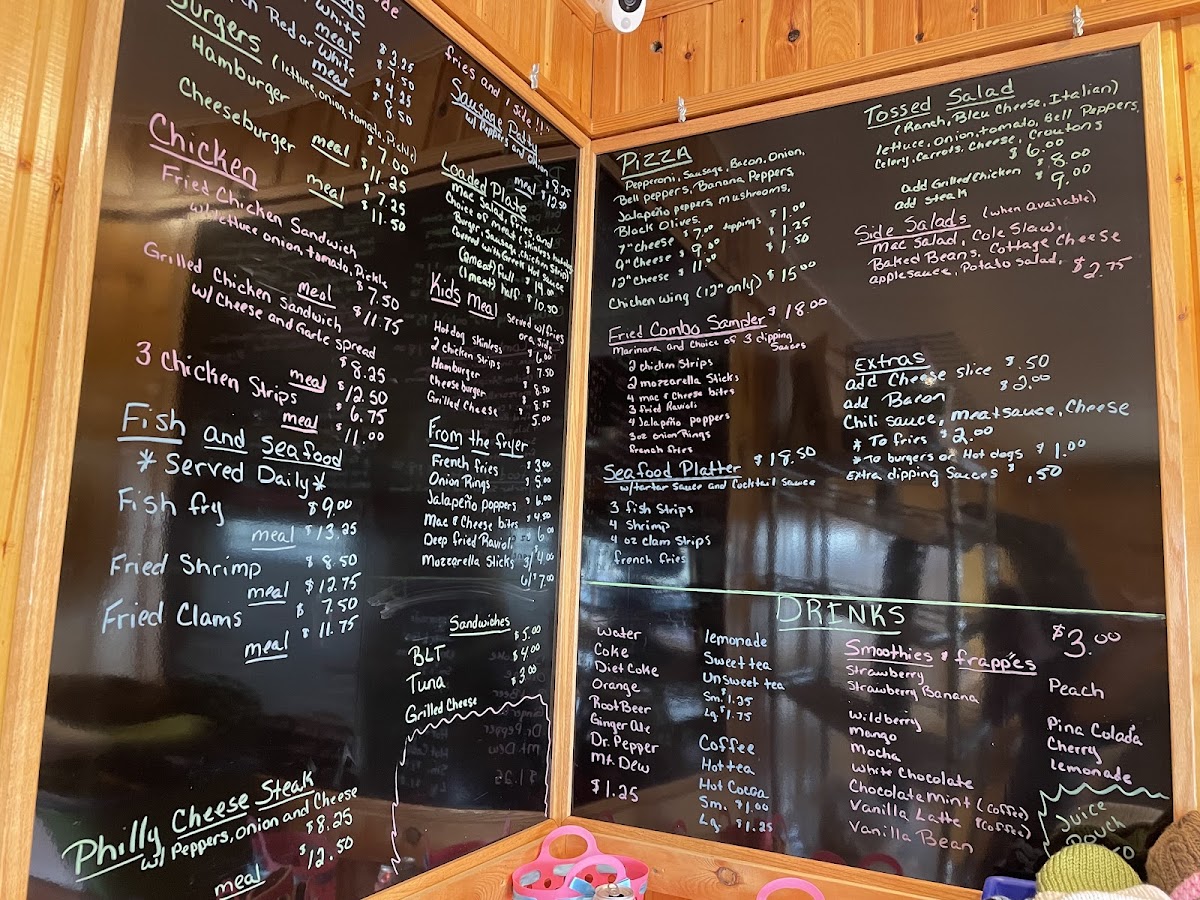 White
meal
Red or White
meal
$3.25
$7.50
$4.25
$8.50
Burgers (lettuce, onion, tomato, Pickle)
Hamburger $7.00
meal $11.25
Cheeseburger $7.25
meal $11.50
Chicken
Fried Chicken Sandwich
w/lettuce onion, tomato, Pickle
$7.50
meal $11.75
Grilled Chicken Sandwich
w/Cheese and Garlic spread
$8.25
meal $12.50
3 Chicken Strips $6.75
meal $11.00
Fish and Seafood
*Served Daily*
Fish fry $9.00
meal $13.25
Fried Shrimp $8.50
meal $12.75
Fried Clams $7.50
meal $11.75
Philly Cheese Steak
w/ Peppers, onion and Cheese
$8.25
meal $12.50
fries and 1 side!!
Sausage Patty
w/ Peppers and onion
$8.25
meal $12.50
Loaded Plate
mac salad, fries, and
Choice of meat (skinless hotdog
Burger, Sausage, Chicken Strips)
Covered with Greek Hot Sauce
(2 meat) full $14.00
(1 meat) half $10.50
Kids meal served w/fries
or a Side
Hot dog skinless $6.00
2 chicken Strips $7.50
Hamburger $8.50
Cheeseburger $8.75
Grilled Cheese 5.00
From the fryer
French fries $3.00
Onion Rings $5.00
Jalapeño poppers $6.00
Mac & Cheese bites $4.50
Deep Fried Ravioli 6.00
Mozzarella Sticks 3/$4.00
6/$7.00
Sandwiches
BLT $5.00
Tuna $4.00
Grilled Cheese $3.00
PIZZA
Pepperoni, Sausage, Bacon, Onion,
Bell peppers, Banana Peppers,
Jalapeño peppers, mushrooms,
Black Olives.
7" cheese $7.00 toppings $1.00
9" Cheese $9.00 $1.25
12" Cheese $11.00 $1.50
Chicken wing (12" only) $15.00
Fried Combo Sampler $18.00
Marinara and Choice of 3 dipping
Sauces
2 chicken Strips
2 mozzarella Sticks
4 mac & Cheese bites
3 fried Ravioli
4 Jalapeño poppers
3oz onion Rings
french fries
Seafood Platter $18.50
w/tartar sauce and Cocktail sauce
3 fish Strips
4 Shrimp
4 oz clam Strips
french fries
Tossed Salad
(Ranch, Bleu Cheese, Italian)
lettuce, onion, tomato, Bell Peppers,
Celery, Carrots, Cheese, Croutons
$6.00
add Grilled Chicken $8.00
add steak $9.00
Side Salads (when available)
Mac Salad, Cole Slaw,
Baked Beans, Cottage Cheese
applesauce, Potato salad, $2.75
Extras
add Cheese slice $.50
add Bacon $2.00
Chili sauce, meat sauce, Cheese
* To fries $2.00
* To burgers or Hot dogs $1.00
Extra dipping Sauces $.50
DRINKS
Water
Coke
Diet Coke
Orange
Root Beer
Ginger Ale
Dr. Pepper
Mt. Dew
$1.25
lemonade
Sweet tea
Unsweet tea
Sm. $1.25
Lg. $1.75
Coffee
Hot tea
Hot Cocoa
Sm. $1.00
Lg. $1.25
Smoothies & frappés $3.00
Strawberry
Strawberry Banana
Wildberry
Mango
Mocha
White Chocolate
Chocolate Mint (Coffee)
Vanilla Latte (Coffee)
Vanilla Bean
Peach
Pina Colada
Cherry
Lemonade
Juice
Pouch